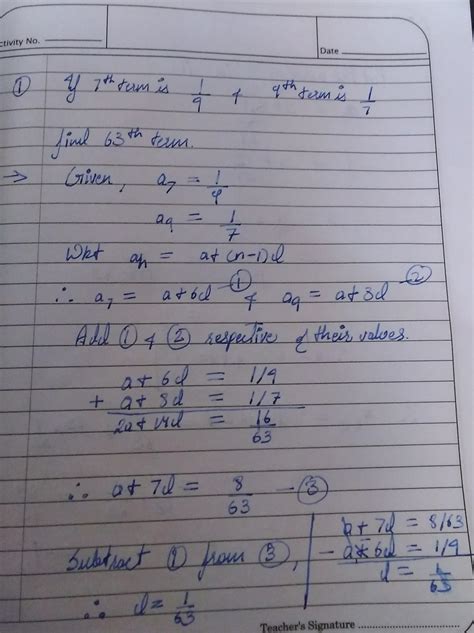 ctivity No.
Date
① If 7th term is 1/9 & 9th term is 1/7
find 63th term.
→ Given, a7 = 1/9
a9 = 1/7
Wkt an = a+(n-1)d
∴ a7 = a+6d —① & a9 = a+8d —②
Add ① & ② respective of their values.
a+6d = 1/9
+ a+8d = 1/7
2a+14d = 16/63
∴ a+7d = 8/63 —③
Subtract ① from ③,
∴ d = 1/63
a+7d = 8/63
- a+6d = 1/9
d = 1/63
Teacher's Signature